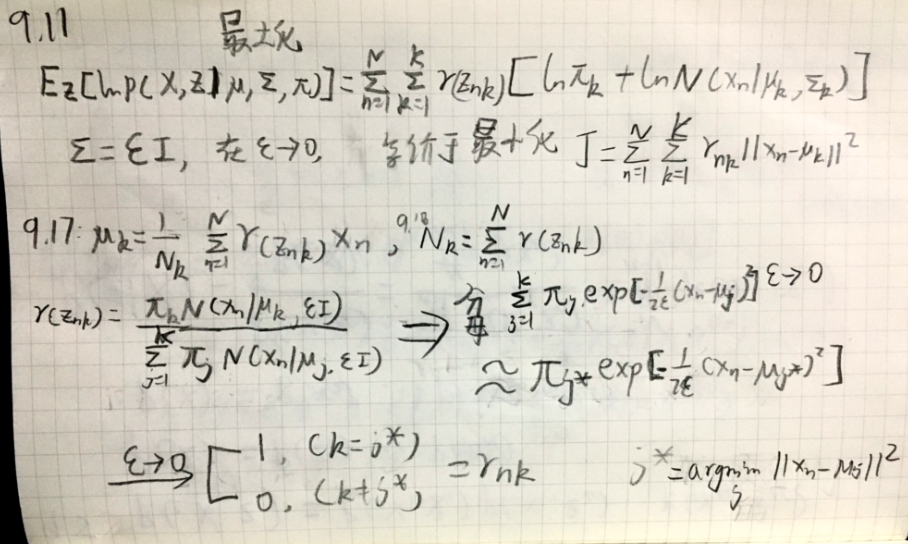 9.11 最大化
E_Z[ln p(X,Z|μ,Σ,π)] = Σ_{n=1}^{N} Σ_{k=1}^{K} γ(z_{nk}) [ln π_k + ln N(x_n|μ_k, Σ_k)]
Σ = εI, 在 ε→0, 等价于 最大化 J = Σ_{n=1}^{N} Σ_{k=1}^{K} r_{nk} ||x_n-μ_k||^2
9.17: μ_k = \frac{1}{N_k} Σ_{n=1}^{N} γ(z_{nk}) x_n , 9.18 N_k = Σ_{n=1}^{N} γ(z_{nk})
γ(z_{nk}) = \frac{π_k N(x_n|μ_k, εI)}{Σ_{j=1}^{K} π_j N(x_n|μ_j, εI)} ⟹ 分母 Σ_{j=1}^{K} π_j exp[-\frac{1}{2ε}(x_n-μ_j)^2] ε→0
≈ π_{j*} exp[-\frac{1}{2ε}(x_n-μ_{j*})^2]
ε→0 → [ 1, (k=j*)
0, (k≠j*) = r_{nk} j* = argmin_j ||x_n-μ_j||^2